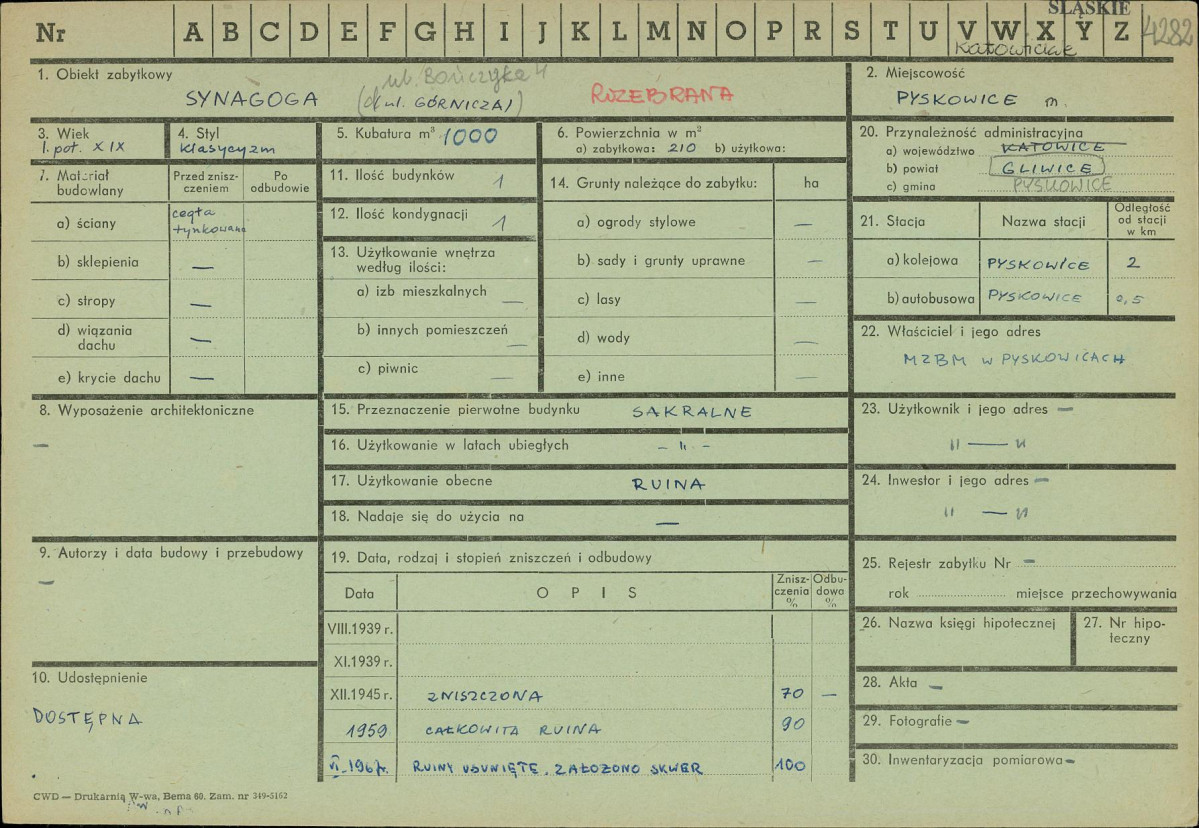 ŚLĄSKIE
Nr A B C D E F G H I J K L M N O P R S T U V W X Y Z 4282
1. Obiekt zabytkowy
ul. Bończyka 4
SYNAGOGA (d. ul. GÓRNICZA)
ROZEBRANA
2. Miejscowość
PYSKOWICE m.
3. Wiek
I. poł. XIX
4. Styl
klasycyzm
5. Kubatura m³ 1000
6. Powierzchnia w m²
a) zabytkowa: 210 b) użytkowa:
20. Przynależność administracyjna
a) województwo KATOWICE
b) powiat GLIWICE
c) gmina PYSKOWICE
7. Materiał budowlany
Przed zniszczeniem
Po odbudowie
a) ściany cegła tynkowana
b) sklepienia —
c) stropy —
d) wiązania dachu —
e) krycie dachu —
11. Ilość budynków 1
12. Ilość kondygnacji 1
13. Użytkowanie wnętrza
według ilości:
a) izb mieszkalnych —
b) innych pomieszczeń —
c) piwnic —
14. Grunty należące do zabytku: ha
a) ogrody stylowe —
b) sady i grunty uprawne —
c) lasy —
d) wody —
e) inne —
21. Stacja
Nazwa stacji
Odległość od stacji w km
a) kolejowa PYSKOWICE 2
b) autobusowa PYSKOWICE 0,5
22. Właściciel i jego adres
MZBM w PYSKOWICACH
8. Wyposażenie architektoniczne
—
15. Przeznaczenie pierwotne budynku SAKRALNE
16. Użytkowanie w latach ubiegłych – " –
17. Użytkowanie obecne RUINA
18. Nadaje się do użycia na —
23. Użytkownik i jego adres —
" — "
24. Inwestor i jego adres —
" — "
9. Autorzy i data budowy i przebudowy
—
19. Data, rodzaj i stopień zniszczeń i odbudowy
Data OPIS Zniszczenia % Odbudowa %
VIII.1939 r.
XI.1939 r.
XII.1945 r. ZNISZCZONA 70 —
1959 CAŁKOWITA RUINA 90
VI.1967r. RUINY USUNIĘTE, ZAŁOŻONO SKWER 100
25. Rejestr zabytku Nr —
rok miejsce przechowywania
26. Nazwa księgi hipotecznej
27. Nr hipoteczny
10. Udostępnienie
DOSTĘPNA
28. Akta —
29. Fotografie —
30. Inwentaryzacja pomiarowa —
CWD — Drukarnia W-wa, Bema 60. Zam. nr 349-5162